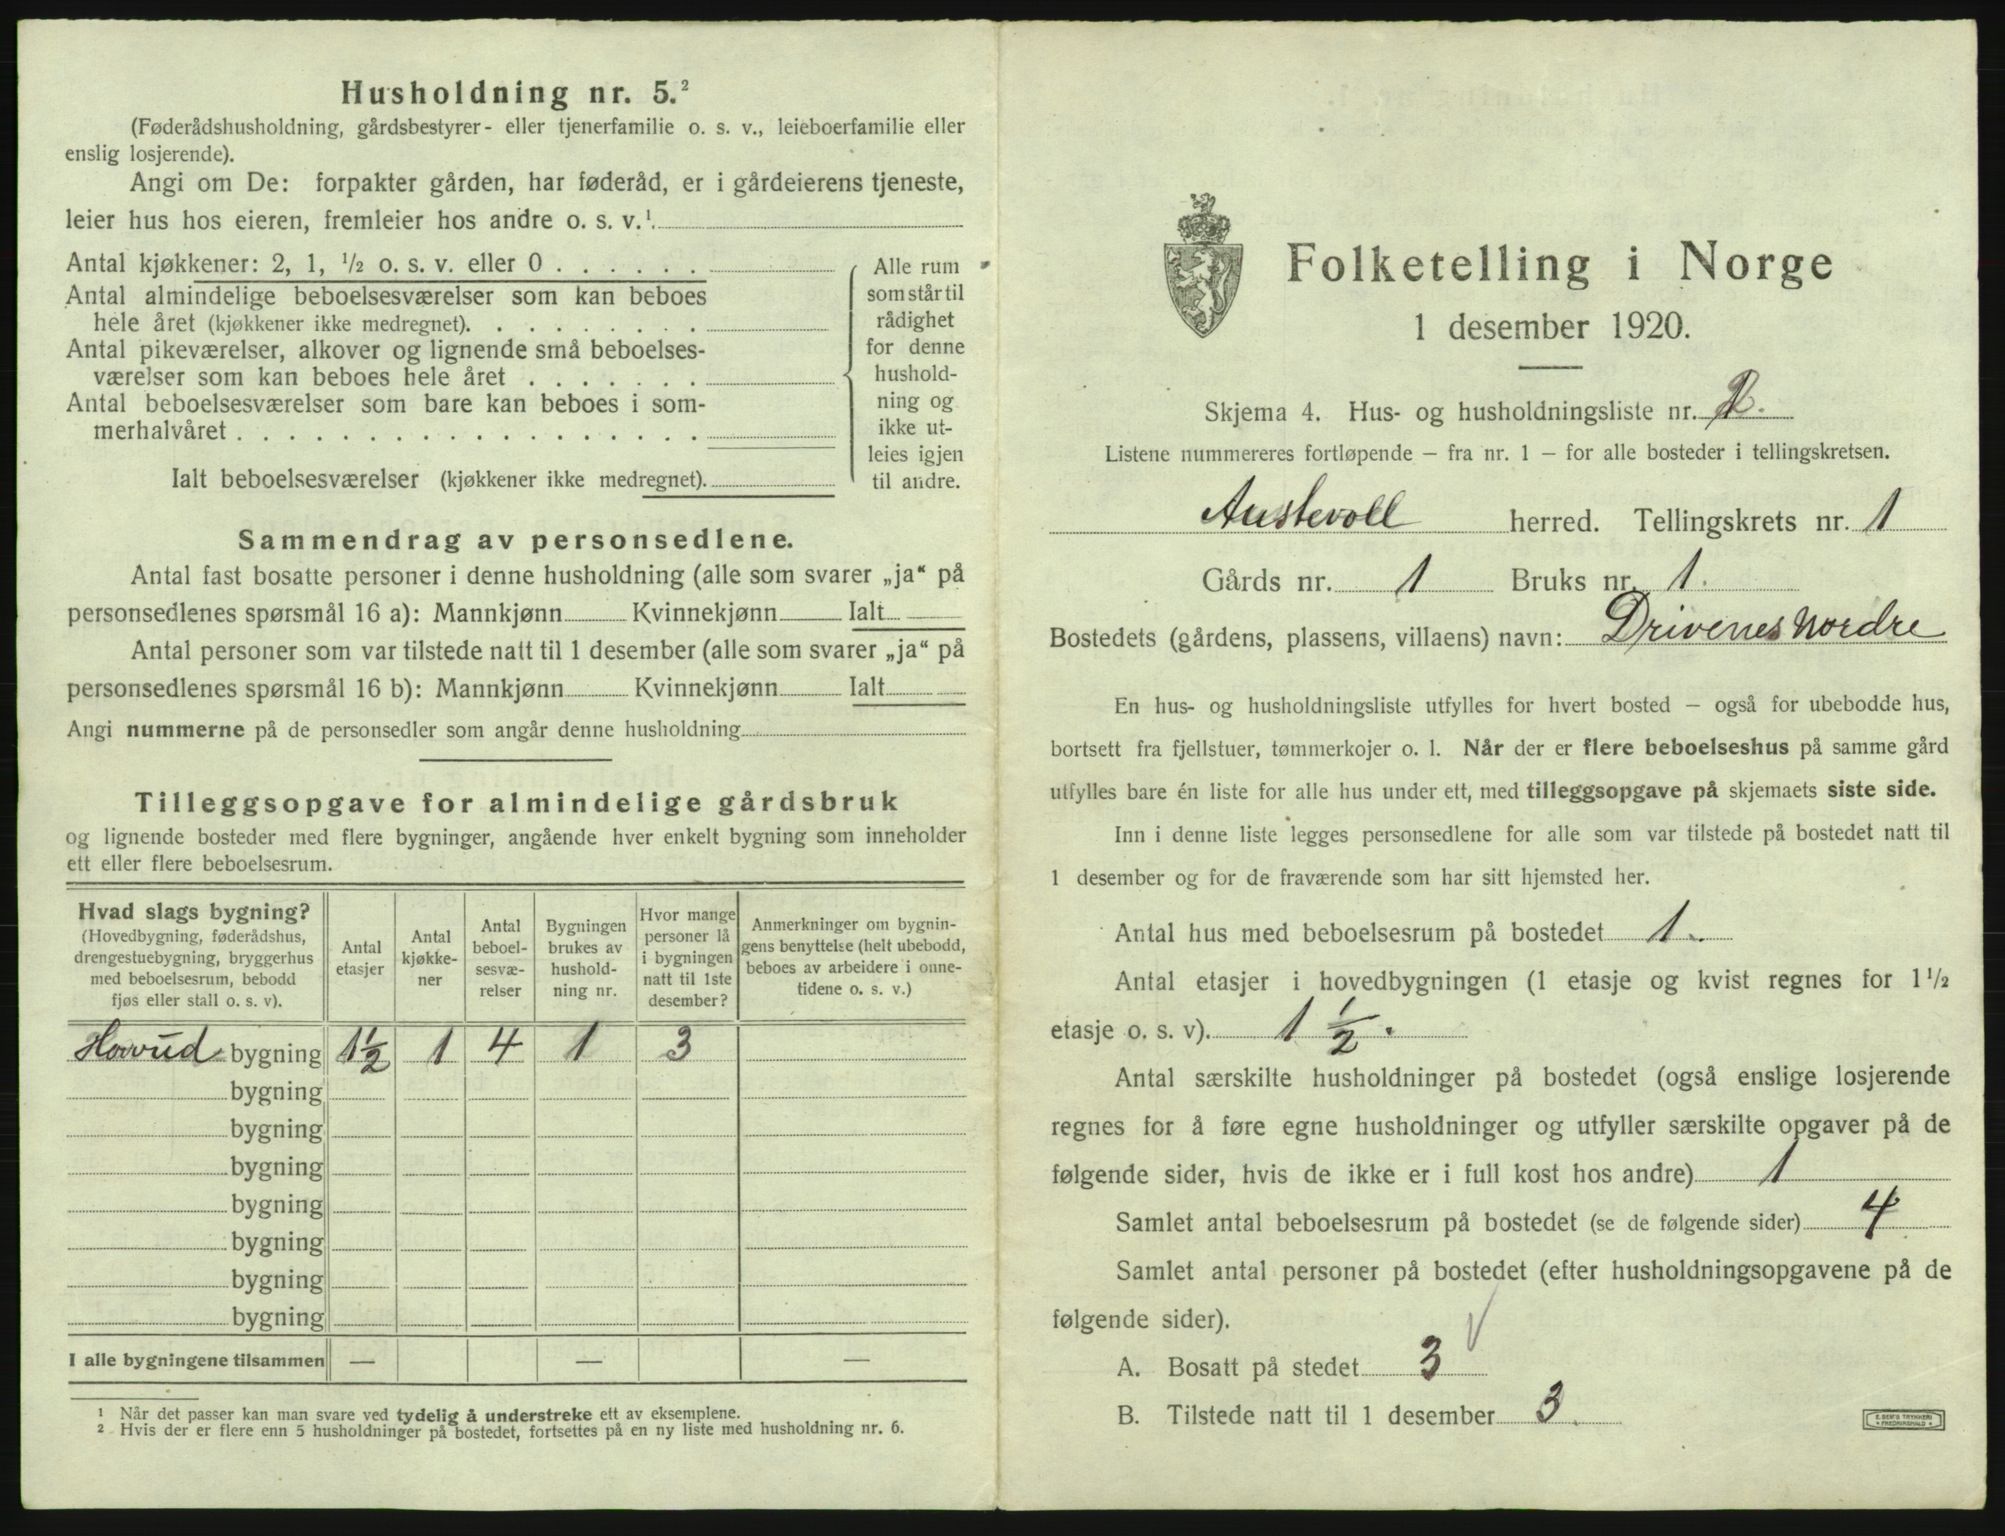 Husholdning nr. 5.²
(Føderådshusholdning, gårdsbestyrer- eller tjenerfamilie o. s. v., leieboerfamilie eller
enslig losjerende).
Angi om De: forpakter gården, har føderåd, er i gårdeierens tjeneste,
leier hus hos eieren, fremleier hos andre o. s. v.¹
Antal kjøkkener: 2, 1, ½ o. s. v. eller 0 . . . . . .
Antal almindelige beboelsesværelser som kan beboes
hele året (kjøkkener ikke medregnet). . . . . . . . .
Antal pikeværelser, alkover og lignende små beboelses-
værelser som kan beboes hele året . . . . . . .
Antal beboelsesværelser som bare kan beboes i som-
merhalvåret . . . . . . . . . . . . . . . . .
Ialt beboelsesværelser (kjøkkener ikke medregnet).
Alle rum
som står til
rådighet
for denne
hushold-
ning og
ikke ut-
leies igjen
til andre.
Sammendrag av personsedlene.
Antal fast bosatte personer i denne husholdning (alle som svarer „ja“ på
personsedlenes spørsmål 16 a): Mannkjønn Kvinnekjønn Ialt
Antal personer som var tilstede natt til 1 desember (alle som svarer „ja“ på
personsedlenes spørsmål 16 b): Mannkjønn Kvinnekjønn Ialt
Angi nummerne på de personsedler som angår denne husholdning
Tilleggsopgave for almindelige gårdsbruk
og lignende bosteder med flere bygninger, angående hver enkelt bygning som inneholder
ett eller flere beboelsesrum.
Hvad slags bygning?
(Hovedbygning, føderådshus,
drengestuebygning, bryggerhus
med beboelsesrum, bebodd
fjøs eller stall o. s. v).
Antal
etasjer
Antal
kjøkke-
ner
Antal
beboel-
sesvæ-
relser
Bygningen
brukes av
hushold-
ning nr.
Hvor mange
personer lå
i bygningen
natt til 1ste
desember?
Anmerkninger om bygnin-
gens benyttelse (helt ubebodd,
beboes av arbeidere i onne-
tidene o. s. v.)
Hovud bygning 1½ 1 4 1 3
bygning
bygning
bygning
bygning
bygning
bygning
bygning
I alle bygningene tilsammen — — —
¹ Når det passer kan man svare ved tydelig å understreke ett av eksemplene.
² Hvis der er flere enn 5 husholdninger på bostedet, fortsettes på en ny liste med husholdning nr. 6.
Folketelling i Norge
1 desember 1920.
Skjema 4. Hus- og husholdningsliste nr.
Listene nummereres fortløpende — fra nr. 1 — for alle bosteder i tellingskretsen.
Austevoll herred. Tellingskrets nr. 1
Gårds nr. 1 Bruks nr. 1.
Bostedets (gårdens, plassens, villaens) navn: Drivenes Nordre
En hus- og husholdningsliste utfylles for hvert bosted — også for ubebodde hus,
bortsett fra fjellstuer, tømmerkojer o. l. Når der er flere beboelseshus på samme gård
utfylles bare én liste for alle hus under ett, med tilleggsopgave på skjemaets siste side.
Inn i denne liste legges personsedlene for alle som var tilstede på bostedet natt til
1 desember og for de fraværende som har sitt hjemsted her.
Antal hus med beboelsesrum på bostedet 1.
Antal etasjer i hovedbygningen (1 etasje og kvist regnes for 1½
etasje o. s. v). 1½.
Antal særskilte husholdninger på bostedet (også enslige losjerende
regnes for å føre egne husholdninger og utfyller særskilte opgaver på de
følgende sider, hvis de ikke er i full kost hos andre) 1
Samlet antal beboelsesrum på bostedet (se de følgende sider) 4
Samlet antal personer på bostedet (efter husholdningsopgavene på de
følgende sider).
A. Bosatt på stedet 3
B. Tilstede natt til 1 desember 3.